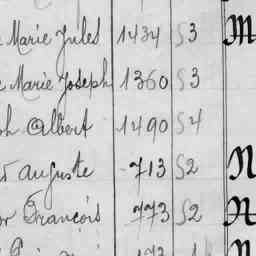 Marie Jules 1434 53 M
Marie Joseph 1360 53
Albert 1490 54
Auguste 713 52 N
François 773 52 N